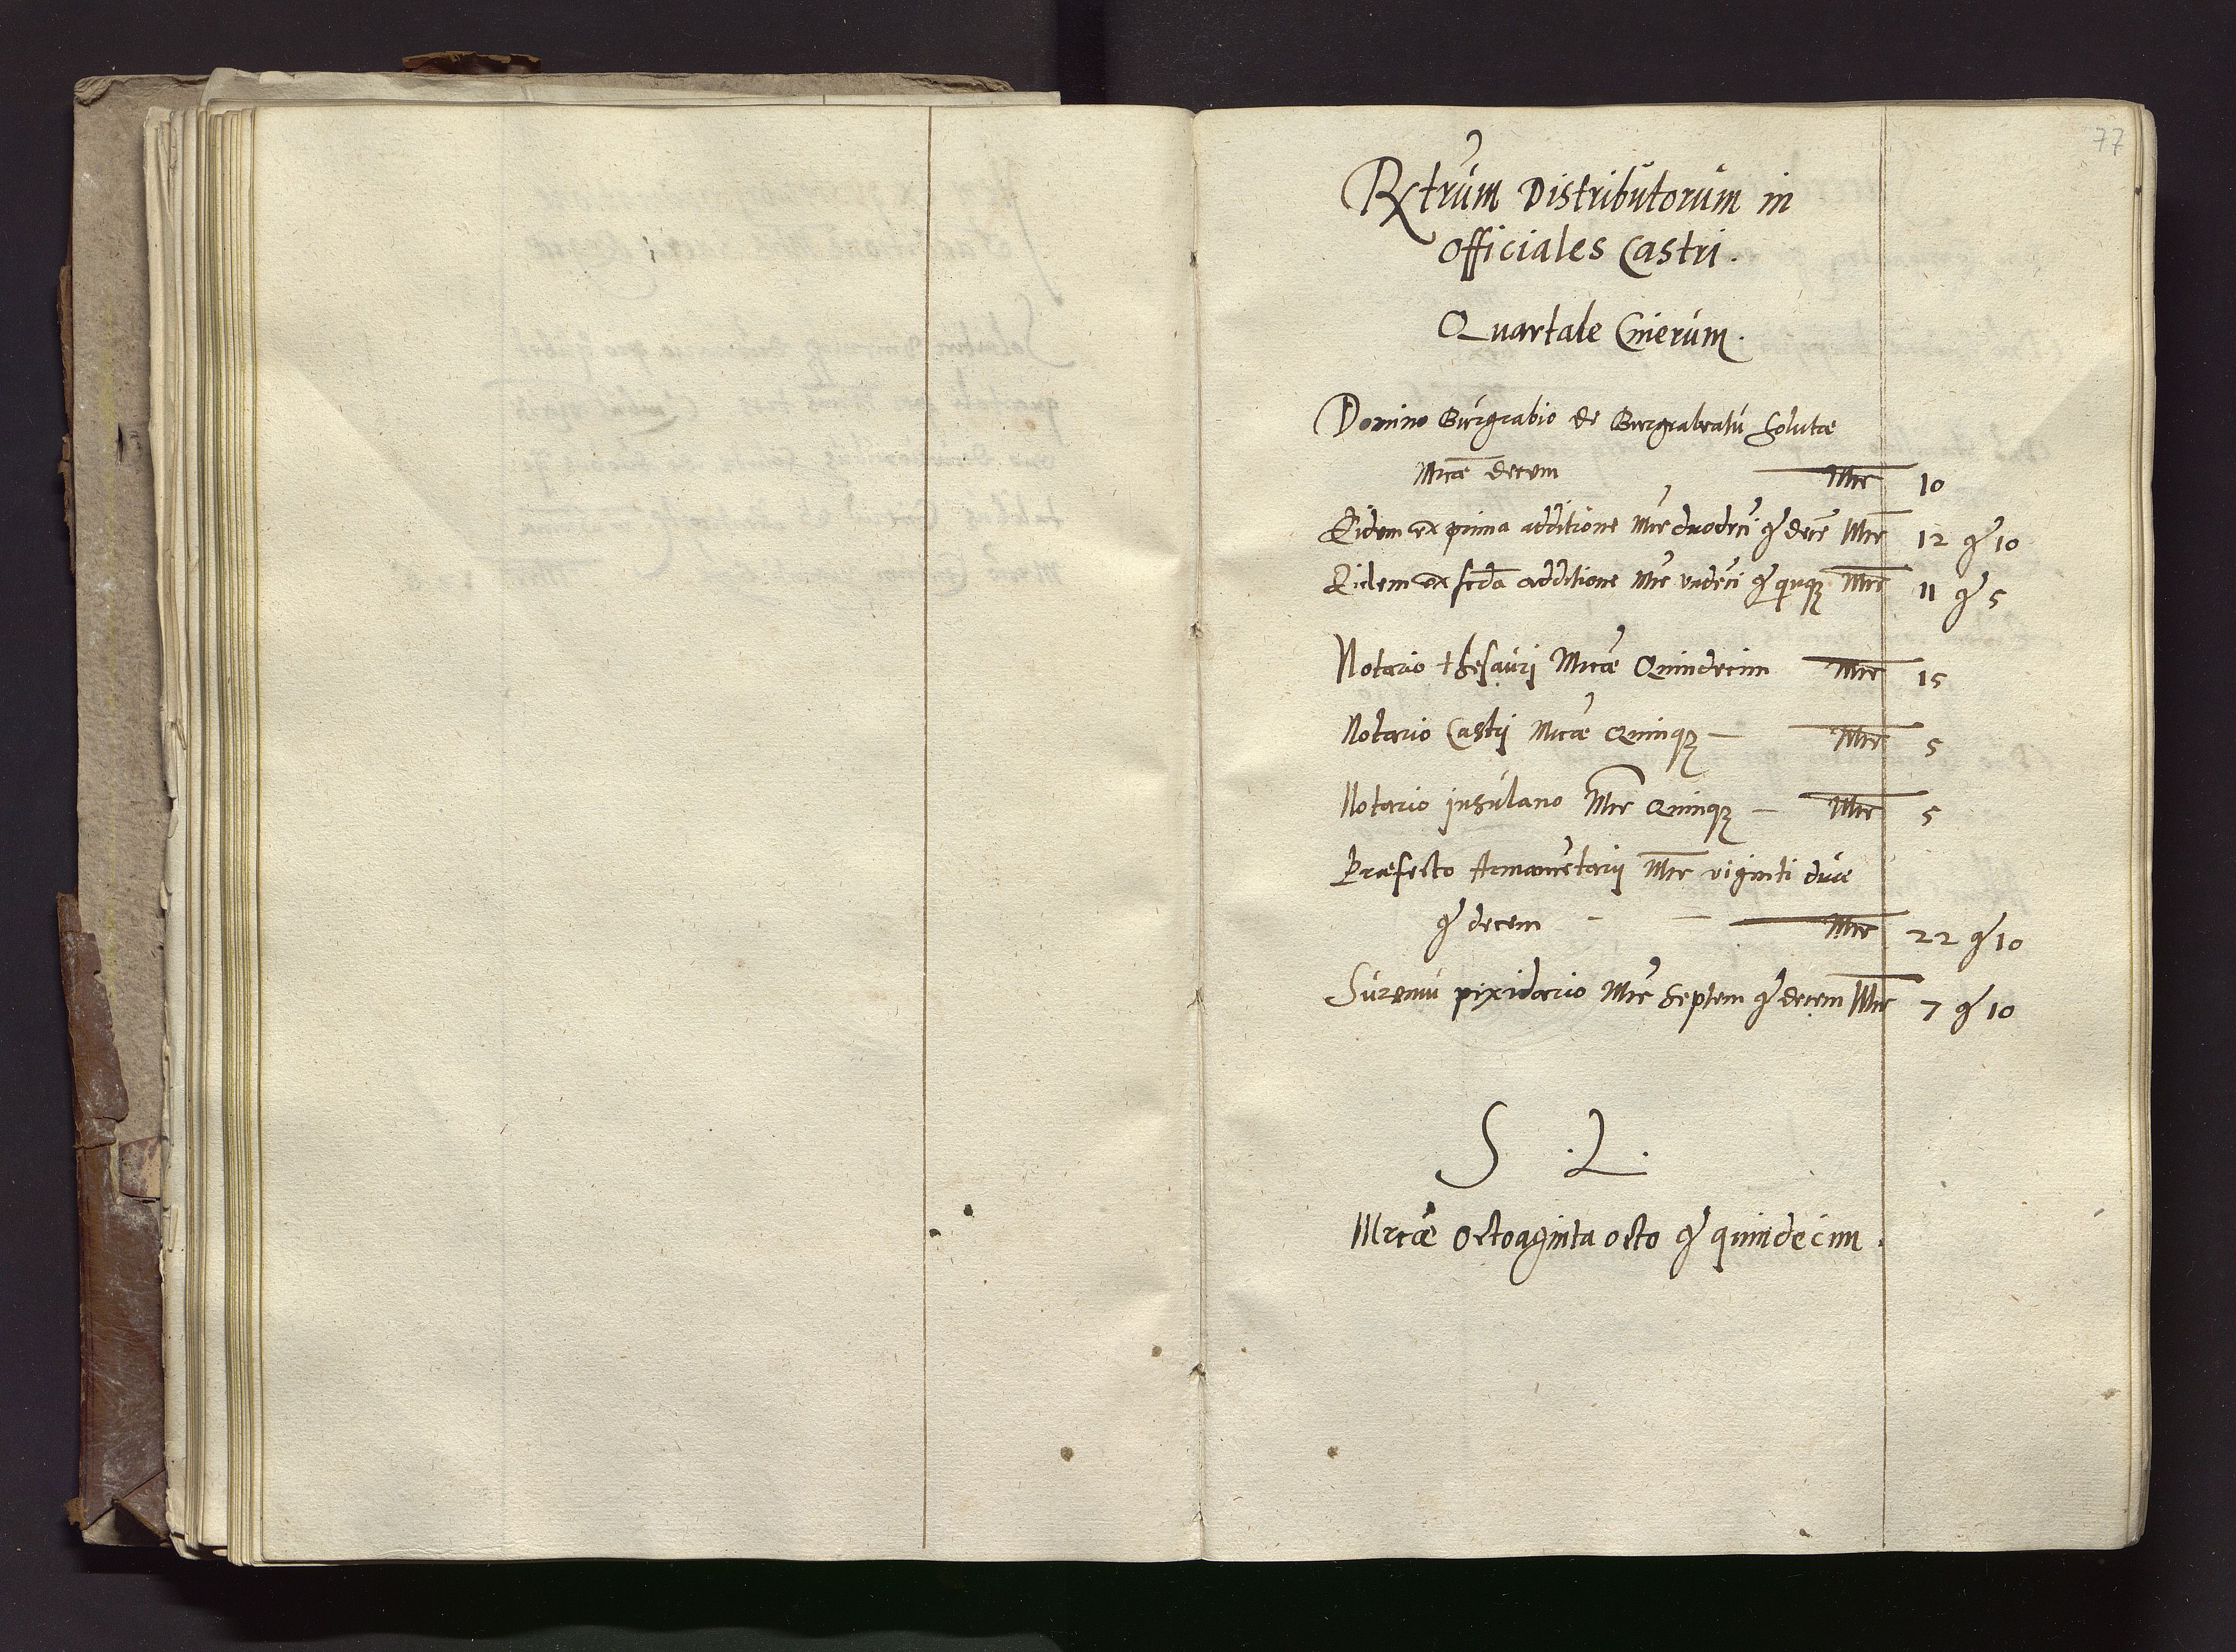 77
Rxtrum Distributorum in
officiales Castri.
Quartale Cinerum.
Domino Burgrabio de Burgrabeatu solutae
Mrcae decem Mrc 10
Eidem ex prima additione Mrc duodeci gr dece Mrc 12 gr 10
Eidem ex scda additione Mrc undeci gr quinqz Mrc 11 gr 5
Notario thesauri Mrcae Quindecim Mrc 15
Notario Castri Mrcae Quinqz — Mrc 5
Notario insulano Mrc Quinqz — Mrc 5
Praefecto Armametarij Mrc viginti duae
gr decem - — Mrc 22 gr 10
pixidario Mrc septem gr decem Mrc 7 gr 10
S .L.
Mrcae octoaginta octo gr quindecim.